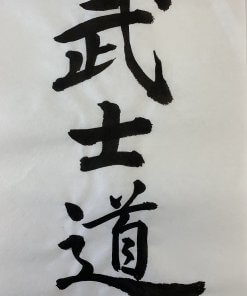 武士道